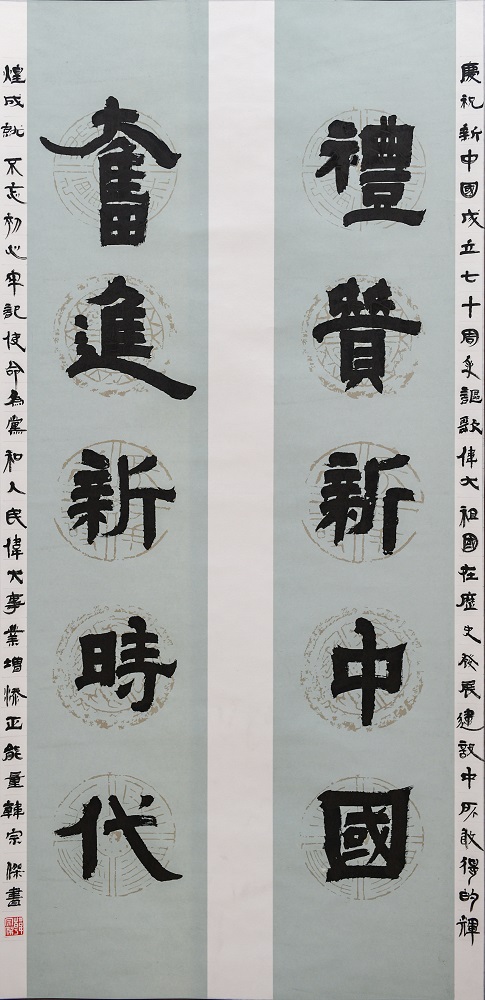 慶祝新中國成立七十周年謳歌偉大祖國在歷史發展建設中所取得的輝
禮贊新中國
奮進新時代
煌成就不忘初心牢記使命為黨和人民偉大事業增添正能量韓宗傑書